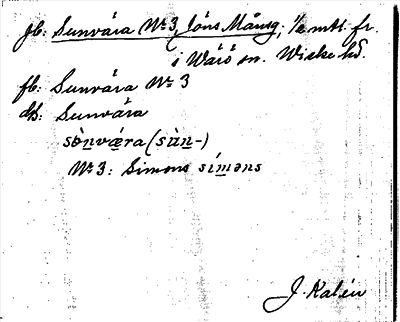 jb: Sunvára Nr 3, Jöns Månsg, 1/2 mtl fr.
i Wärö sn. Wiske hd.
fb: Sunvára Nr 3
ds: Sunvára
sònvǽra (sùn-)
Nr 3: Simons símǝns
J. Kalén